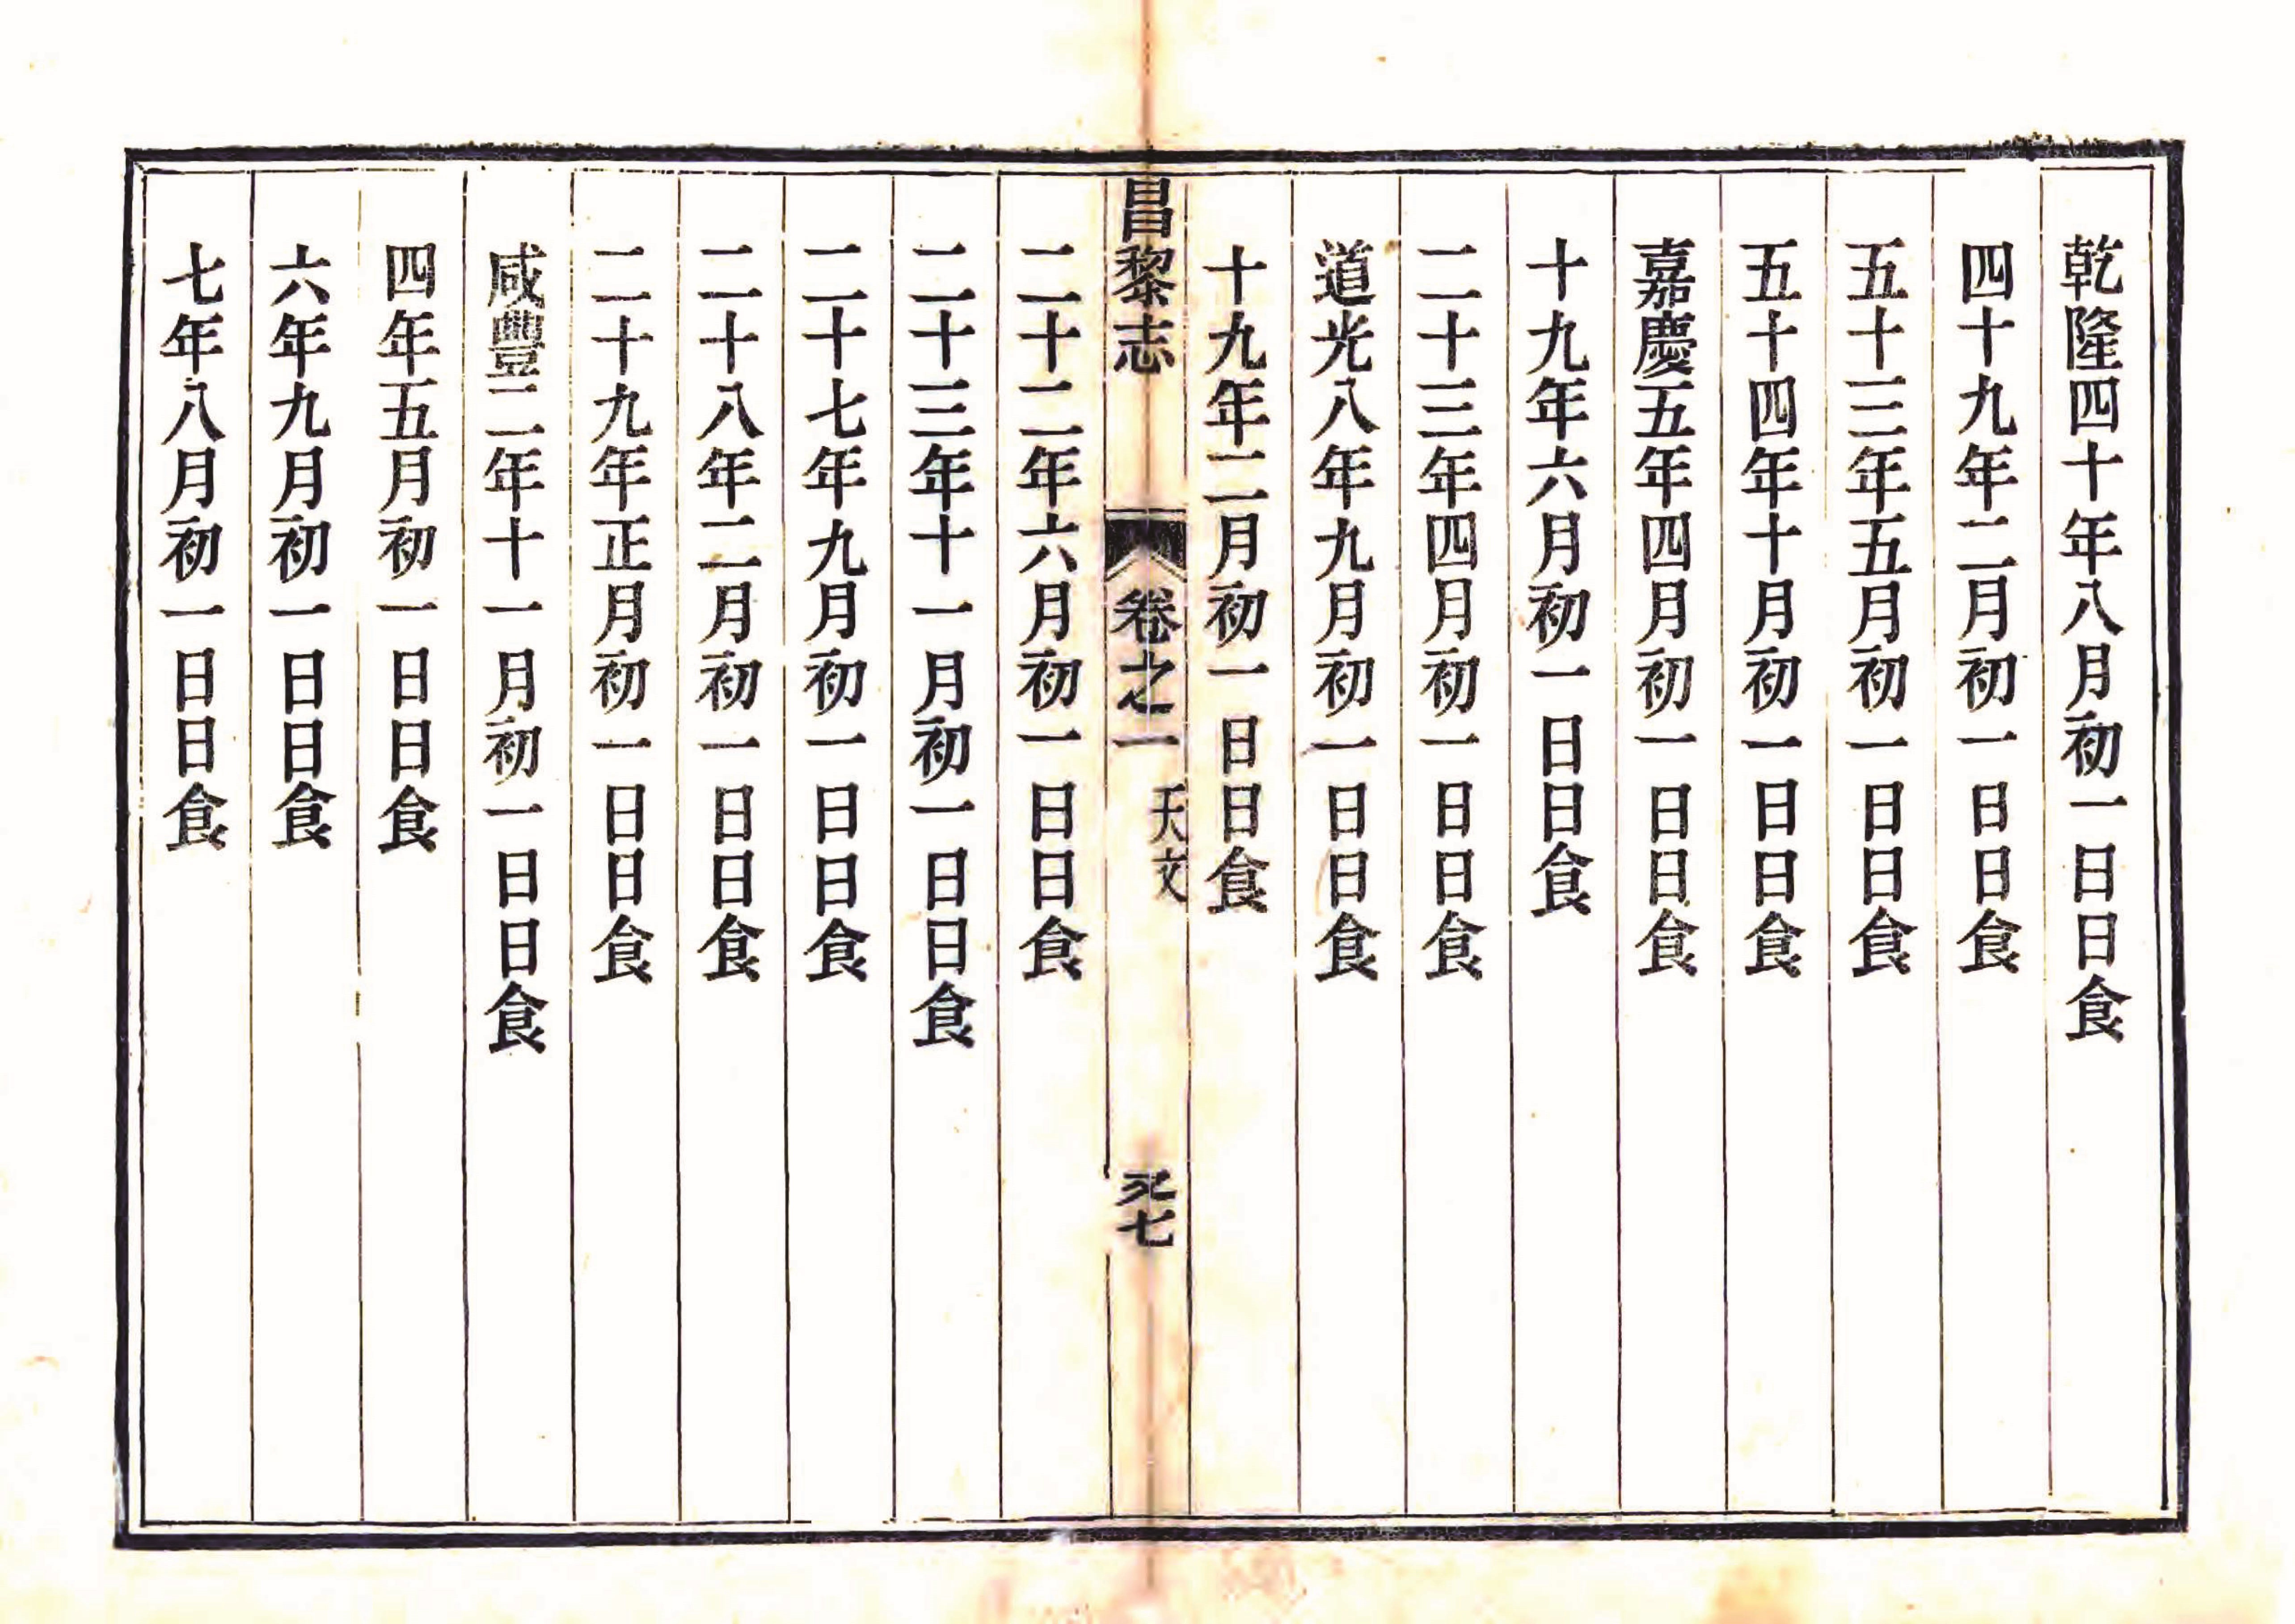 乾隆四十年八月初一日日食
四十九年二月初一日日食
五十三年五月初一日日食
五十四年十月初一日日食
嘉慶五年四月初一日日食
十九年六月初一日日食
二十三年四月初一日日食
道光八年九月初一日日食
十九年二月初一日日食
昌黎志 卷之一 天文 七
二十二年六月初一日日食
二十三年十一月初一日日食
二十七年九月初一日日食
二十八年二月初一日日食
二十九年正月初一日日食
咸豐二年十一月初一日日食
四年五月初一日日食
六年九月初一日日食
七年八月初一日日食